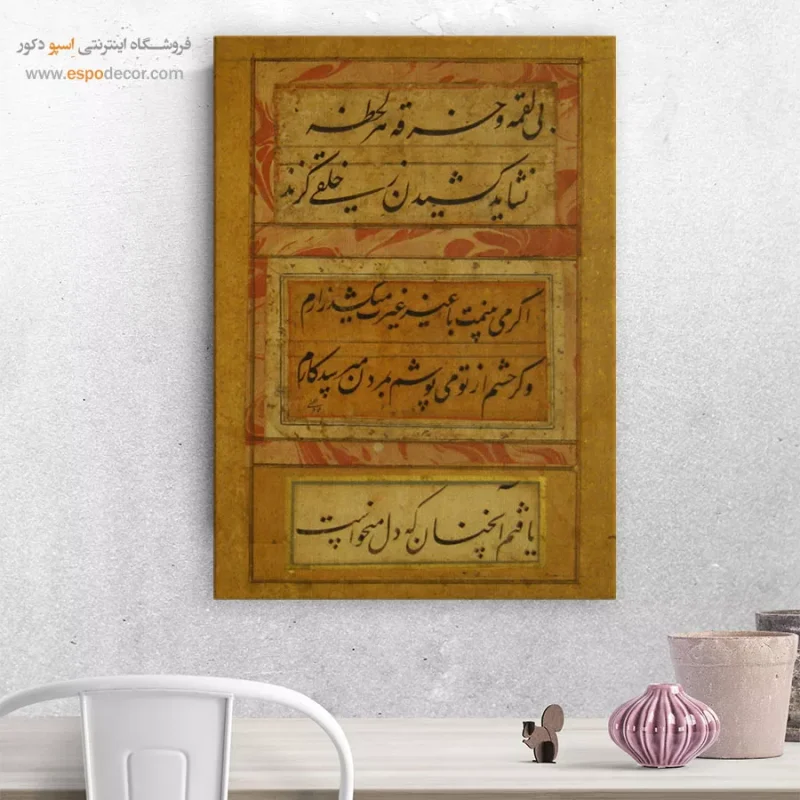 فروشگاه اینترنتی اسپو دکور
www.espodecor.com
بی لقمه و خرقه هر لحظه
نشاید کشیدن ز خلقی گزند
اگر می بینمت با غیر غیرت میکشد زارم
وگر چشم از تو می پوشم بمردن میرسد کارم
یافتم آنچنان که دل میخواست